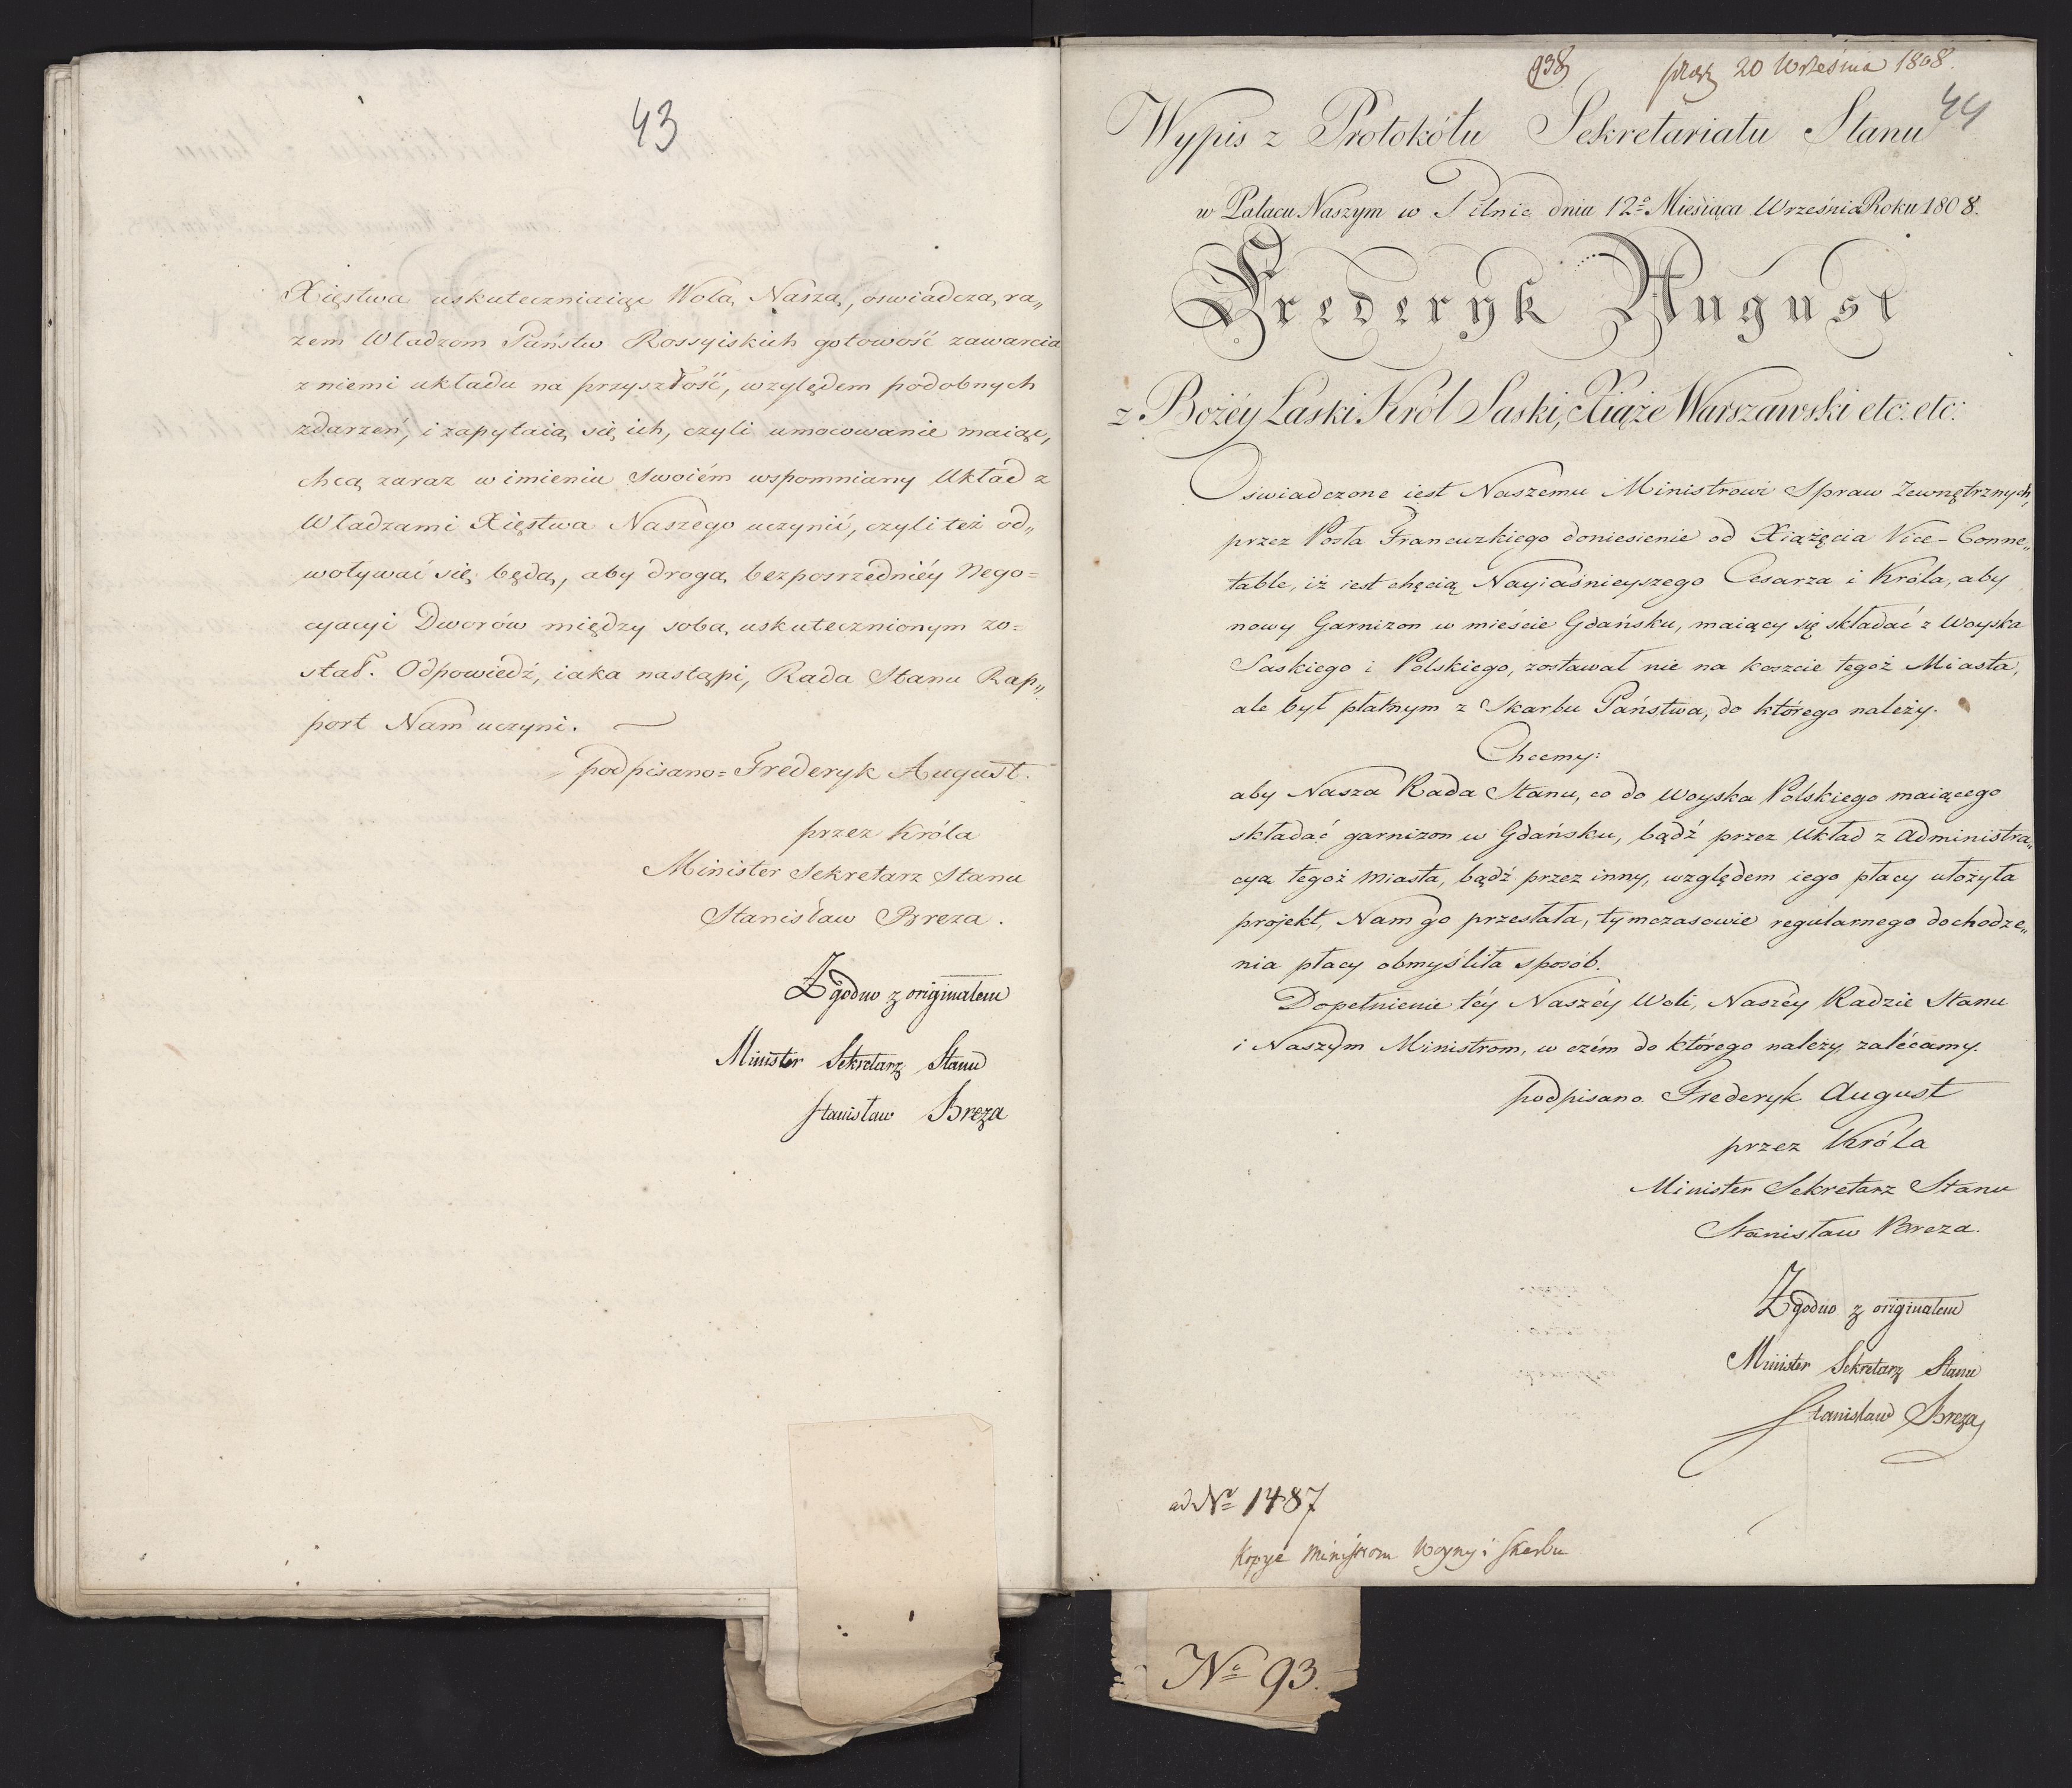 43
Xięstwa uskuteczniaiąc Wolą Naszą, oswiadczą ra„
zem Władzom Państw Rossyiskich gotowość zawarcia
z niemi układu na przyszłość, względem podobnych
zdarzeń, i zapytaią się ich, czyli umocowanie maiąc,
chcą zaraz w imieniu swoiém wspomniany Układ z
Władzami Xięstwa Naszego uczynić, czyli też od„
woływać się będą, aby drogą bezposrzedniéy Nego=
cyacyi Dworów między sobą uskutecznionym zo=
stał. Odpowiedź, iaka nastąpi, Rada Stanu Rap„
port Nam uczyni.
podpisano= Frederyk August.
przez Króla
Minister Sekretarz Stanu
Stanisław Breza.
Zgodno z originałem
Minister Sekretarz Stanu
Stanisław Breza
938
20 Września 1808.
44
Wypis z Protokółu Sekretariatu Stanu
w Pałacu Naszym w Pilnic dnia 12º Miesiąca Września Roku 1808.
Frederyk August
z Bożéy Łaski Król Saski, Xiąże Warszawski etc: etc:
Oświadczone iest Naszemu Ministrowi Spraw Zewnętrznych,
przez Posła Francuzkiego doniesienie od Xiążęcia Vice-Conne„
table, iż iest chęcią Nayiaśnieyszego Cesarza i Króla, aby
nowy Garnizon w mieście Gdańsku, maiący się składać z Woyska
Saskiego i Polskiego, zostawał nie na koszcie tegoż Miasta,
ale był płatnym z Skarbu Państwa, do którego należy.
Chcemy:
aby Nasza Rada Stanu, co do Woyska Polskiego maiącego
składać garnizon w Gdańsku, bądź przez Układ z Administra„
cyą tegoż Miasta, bądź przez inny, względem iego płacy ułożyła
projekt, Nam go przesłała, tymczasowie regularnego dochodze„
nia płacy obmyśliła sposób.
Dopełnienie téy Naszéy Woli, Naszéy Radzie Stanu
i Naszym Ministrom, w czém do którego należy, zalécamy.
podpisano. Frederyk August
przez Króla
Minister Sekretarz Stanu
Stanisław Breza.
Zgodno z originałem
Minister Sekretarz Stanu
Stanisław Breza
ad Nº 1487
Kopye Ministrom Woyny i Skarbu
Nº 93.